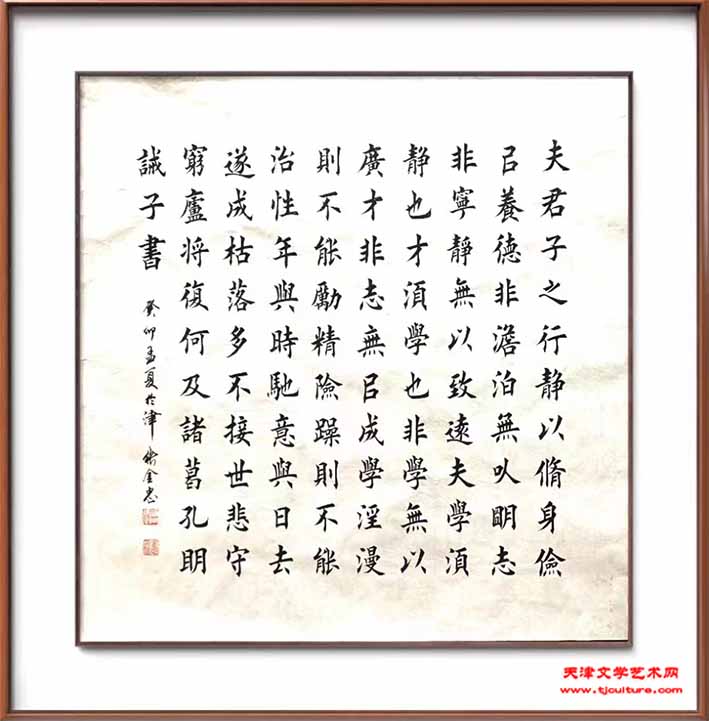 夫君子之行静以脩身儉
㠯養德非澹泊無㕥眀志
非寧静無以致遠夫學須
静也才須學也非學無以
廣才非志無㠯成學淫漫
則不能勵精險躁則不能
治性年與時馳意與日去
遂成枯落多不接世悲守
窮廬将復何及諸葛孔明
誡子書
癸卯孟夏於津 金忠
天津文学艺术网
www.tjculture.com